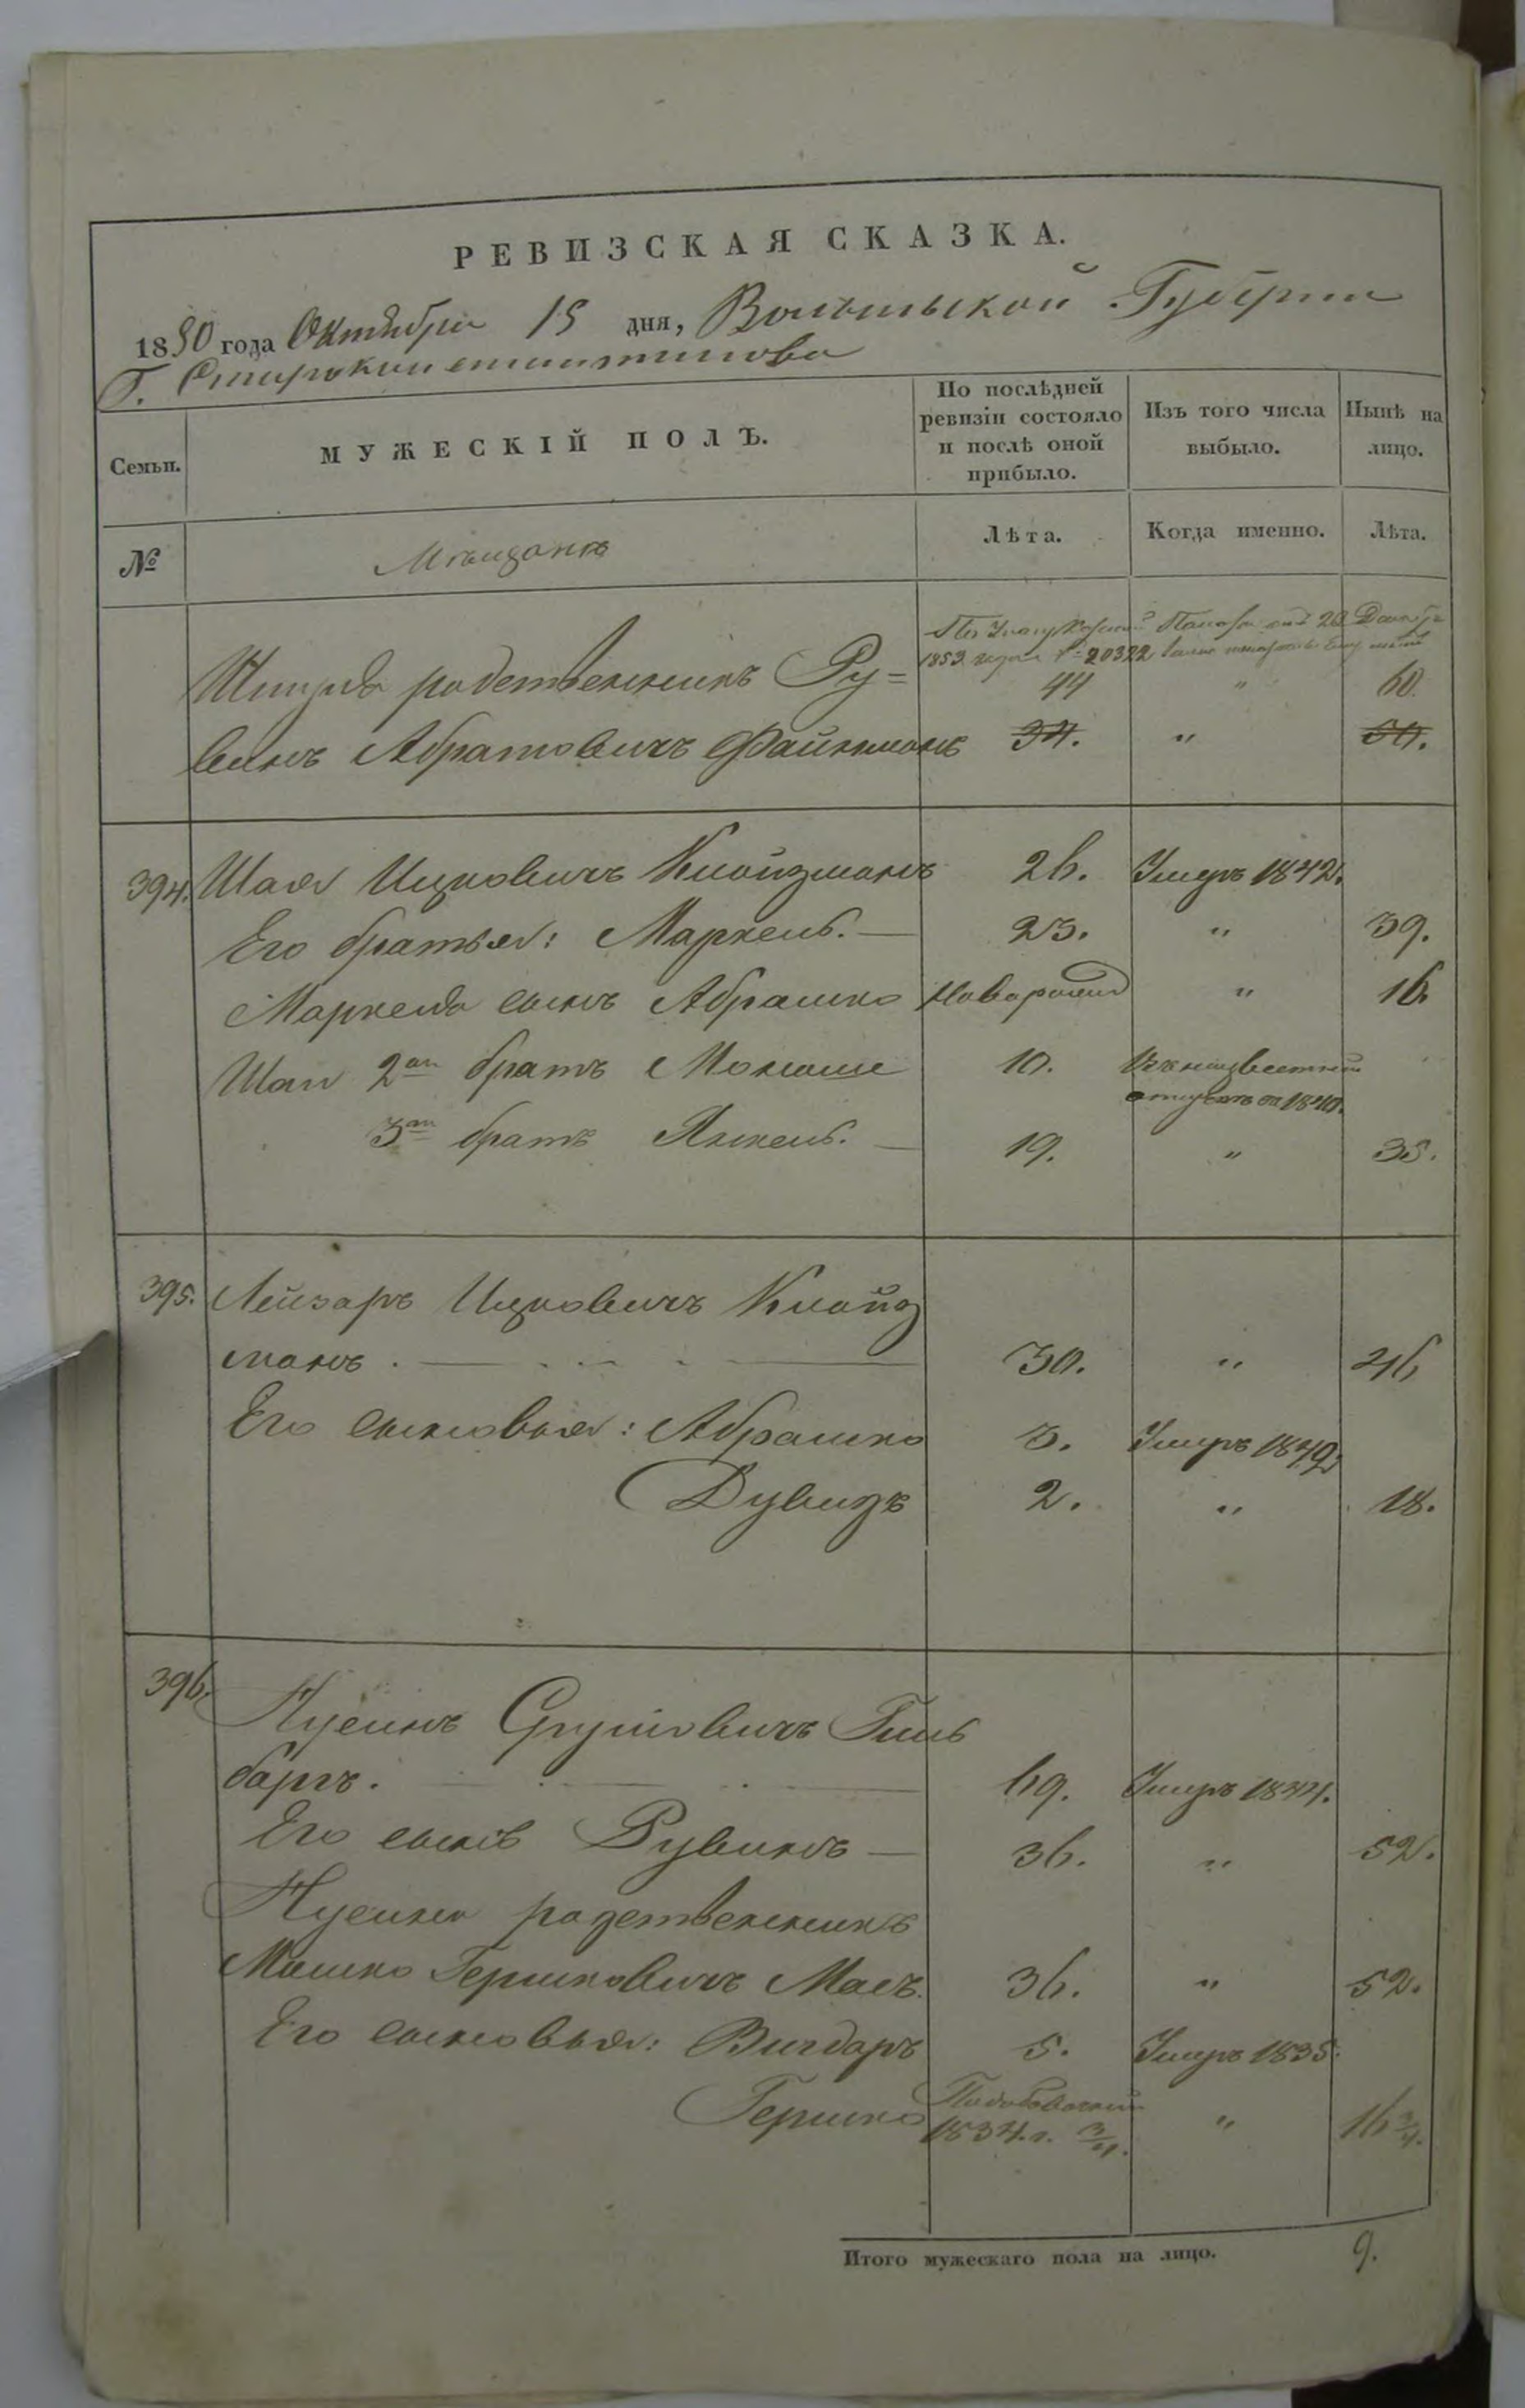 РЕВИЗСКАЯ СКАЗКА.
1850 года Октября 15 дня, Волынской Губернии
Г. Староконстантинова
Семьи.
МУЖЕСКІЙ ПОЛЪ.
По послѣдней ревизіи состояло и послѣ оной прибыло.
Изъ того числа выбыло.
Нынѣ на лицо.
№
Мѣщане
Лѣта.
Когда именно.
Лѣта.
По Указу Палаты отъ 20
1853 года № 20322
родственникъ Ру= 44 " 60.
винъ Абрамовичъ Файнманъ 34. " 50.
394. Шая Ицковичъ Клойзманъ 26. Умеръ 1842.
Его братья: Маркель. 23. " 39.
Маркеля сынъ Абрашко Новорожд " 16
Шаи 2ой братъ Мошко 10. Въ неизвестной
отлучкѣ съ 1840.
3ой братъ Янкель. 19. " 35.
395. Лейзаръ Ицковичъ Клойз
манъ. 30. " 46
Его сыновья: Абрашко 3. Умеръ 1849
Дувидъ 2. " 18.
396. Нусинъ Сруловичъ Гиль
баргъ. 69. Умеръ 1844.
Его сынъ Рувинъ 36. " 52.
Нусина родственникъ
Мошко Гершковичъ Масъ. 36. " 52.
Его сыновья: Вигдоръ 5. Умеръ 1835.
Гершко
1834. г. 3/4. " 16 3/4.
Итого мужескаго пола на лицо. 9.